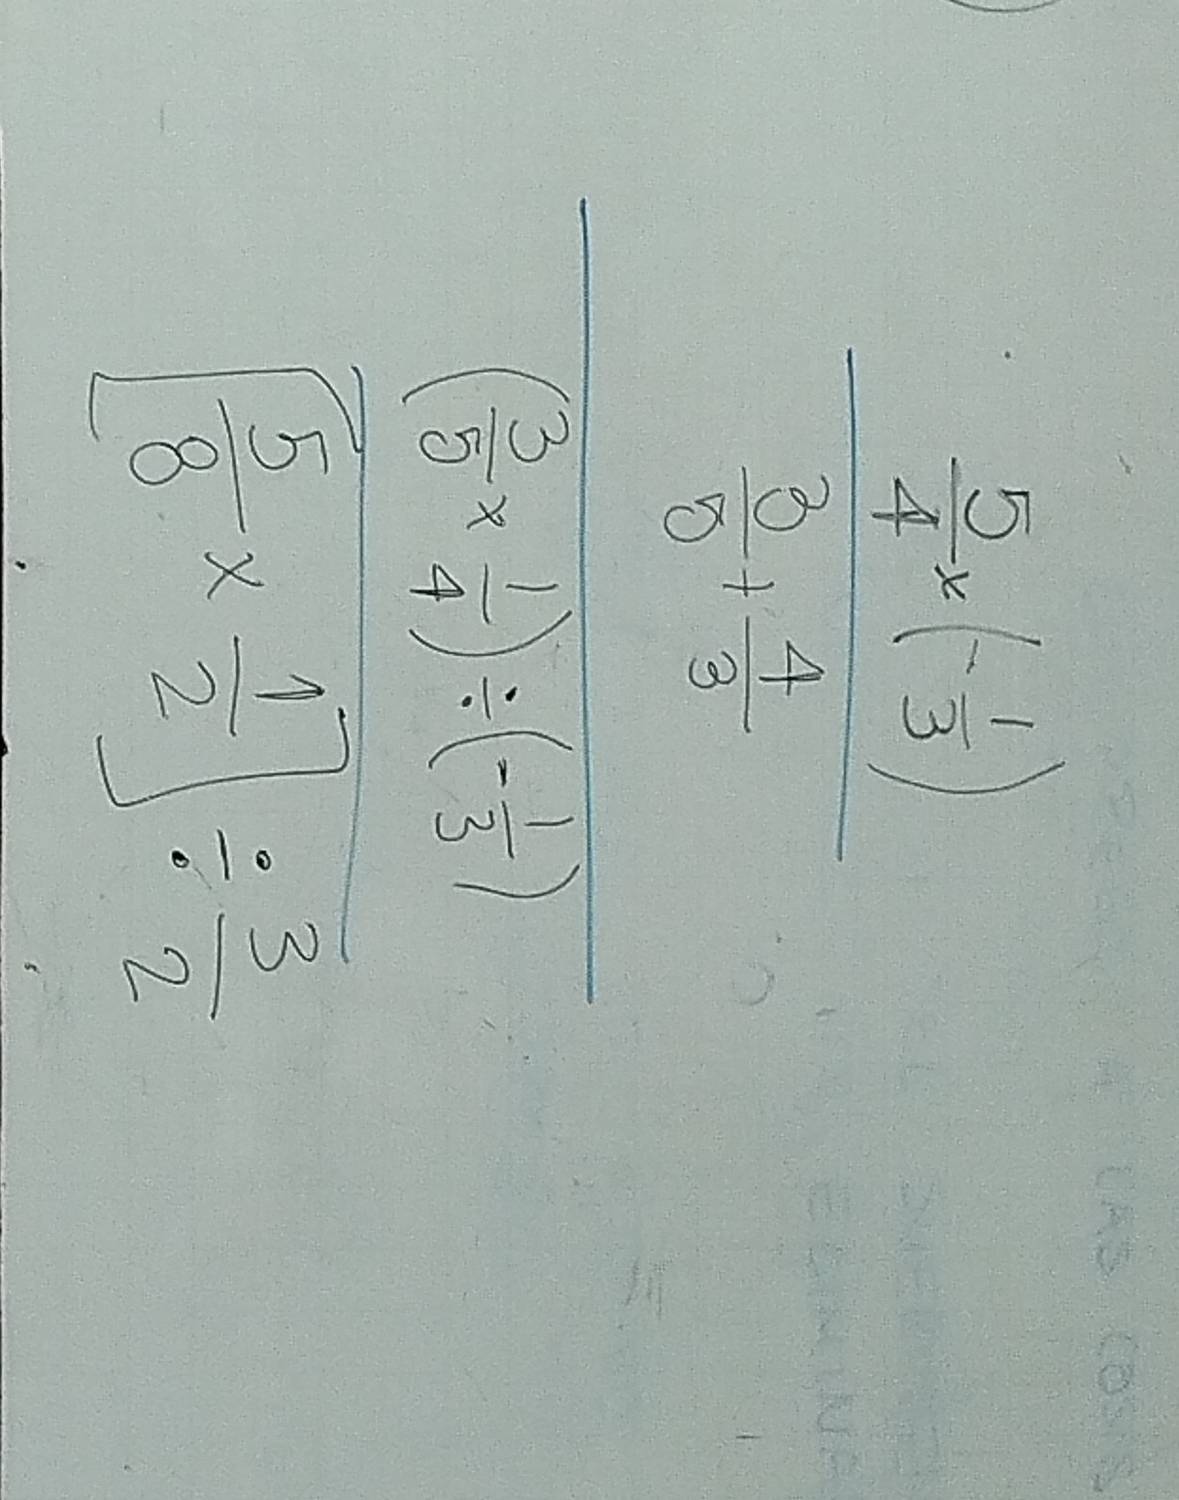 5/4 x (- 1/3)
3/5 + 4/3
(3/5 x 1/4) ÷ (- 1/3)
[5/8 x 1/2] ÷ 3/2